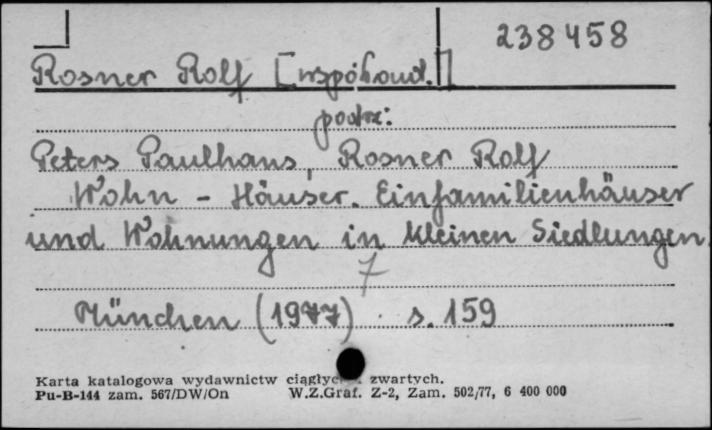 238458
Rosner Rolf [współaut.]
patrz:
Peters Paulhans, Rosner Rolf
Wohn - Häuser. Einfamilienhäuser
und Wohnungen in kleinen Siedlungen.
7
München (1977) s. 159
Karta katalogowa wydawnictw zwartych.
Pu-B-144 zam. 567/DW/On W.Z.Graf. Z-2, Zam. 502/77, 6 400 000